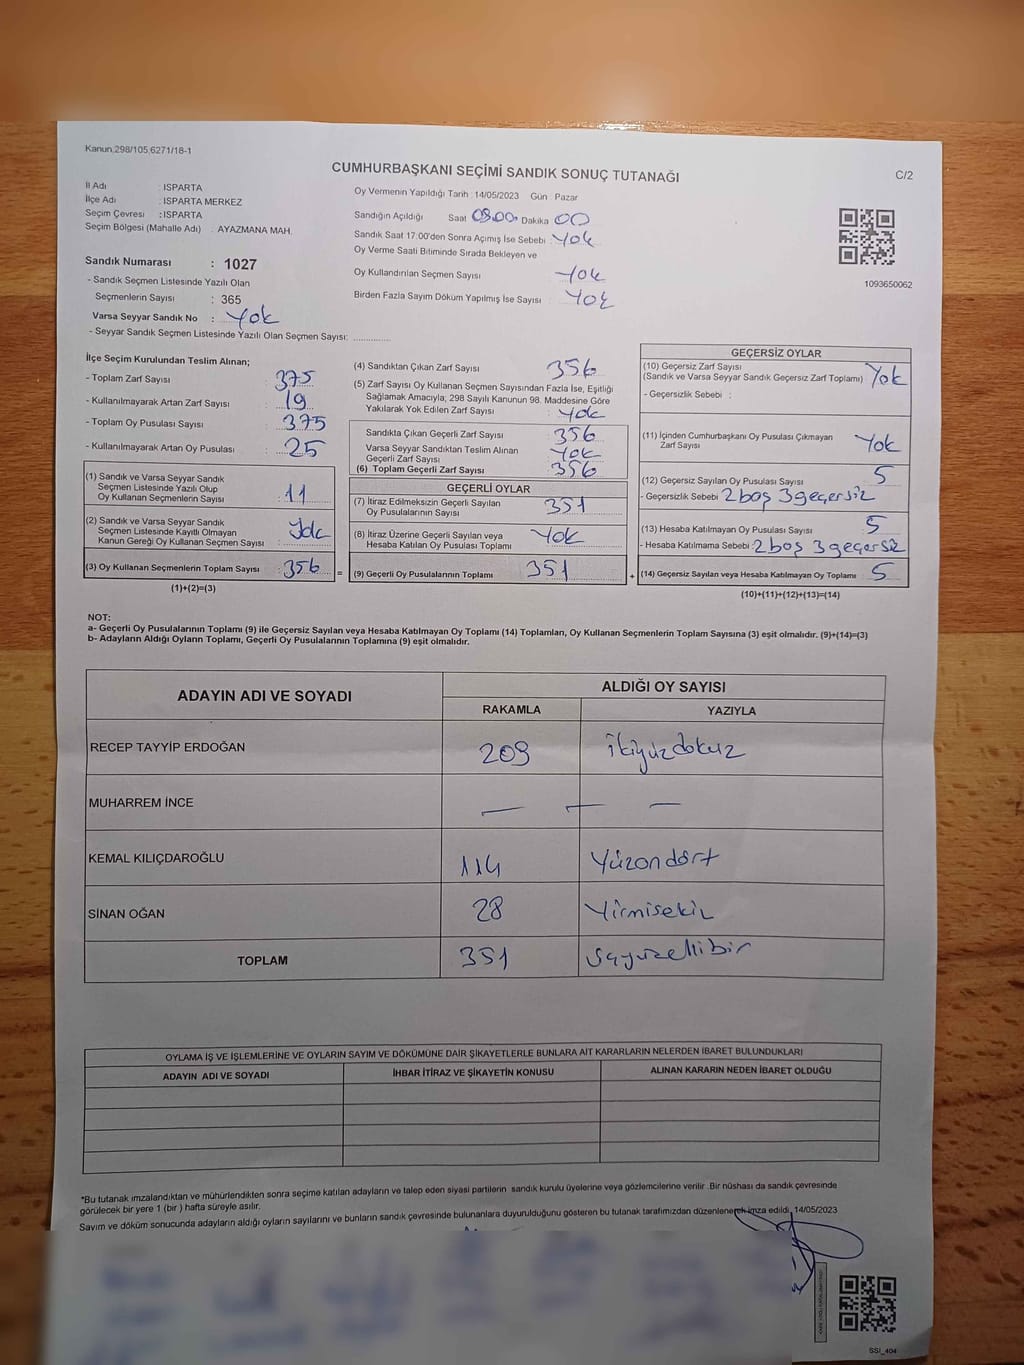 Kanun,298/105,6271/18-1
CUMHURBAŞKANI SEÇİMİ SANDIK SONUÇ TUTANAĞI
C/2
İl Adı : ISPARTA
İlçe Adı : ISPARTA MERKEZ
Seçim Çevresi : ISPARTA
Seçim Bölgesi (Mahalle Adı) : AYAZMANA MAH.
Sandık Numarası : 1027
- Sandık Seçmen Listesinde Yazılı Olan
Seçmenlerin Sayısı : 365
Varsa Seyyar Sandık No : Yok
- Seyyar Sandık Seçmen Listesinde Yazılı Olan Seçmen Sayısı: ..............
Oy Vermenin Yapıldığı Tarih : 14/05/2023 Gün : Pazar
Sandığın Açıldığı Saat 08.00 Dakika 00
Sandık Saat 17:00'den Sonra Açımış İse Sebebi : Yok
Oy Verme Saati Bitiminde Sırada Bekleyen ve
Oy Kullandırılan Seçmen Sayısı Yok
Birden Fazla Sayım Döküm Yapılmış İse Sayısı Yok
1093650062
İlçe Seçim Kurulundan Teslim Alınan;
- Toplam Zarf Sayısı : 375
- Kullanılmayarak Artan Zarf Sayısı : 19
- Toplam Oy Pusulası Sayısı : 375
- Kullanılmayarak Artan Oy Pusulası : 25
(1) Sandık ve Varsa Seyyar Sandık
Seçmen Listesinde Yazılı Olup
Oy Kullanan Seçmenlerin Sayısı : 11
(2) Sandık ve Varsa Seyyar Sandık
Seçmen Listesinde Kayıtlı Olmayan
Kanun Gereği Oy Kullanan Seçmen Sayısı : Yok
(3) Oy Kullanan Seçmenlerin Toplam Sayısı : 356
(1)+(2)=(3)
=
(4) Sandıktan Çıkan Zarf Sayısı 356
(5) Zarf Sayısı Oy Kullanan Seçmen Sayısından Fazla İse, Eşitliği
Sağlamak Amacıyla; 298 Sayılı Kanunun 98. Maddesine Göre
Yakılarak Yok Edilen Zarf Sayısı : Yok
Sandıkta Çıkan Geçerli Zarf Sayısı : 356
Varsa Seyyar Sandıktan Teslim Alınan
Geçerli Zarf Sayısı : Yok
(6) Toplam Geçerli Zarf Sayısı : 356
GEÇERLİ OYLAR
(7) İtiraz Edilmeksizin Geçerli Sayılan
Oy Pusulalarının Sayısı : 351
(8) İtiraz Üzerine Geçerli Sayılan veya
Hesaba Katılan Oy Pusulası Toplamı : Yok
(9) Geçerli Oy Pusulalarının Toplamı : 351
+
GEÇERSİZ OYLAR
(10) Geçersiz Zarf Sayısı
(Sandık ve Varsa Seyyar Sandık Geçersiz Zarf Toplamı) Yok
- Geçersizlik Sebebi :
(11) İçinden Cumhurbaşkanı Oy Pusulası Çıkmayan
Zarf Sayısı Yok
(12) Geçersiz Sayılan Oy Pusulası Sayısı 5
- Geçersizlik Sebebi 2 boş 3 geçersiz
(13) Hesaba Katılmayan Oy Pusulası Sayısı 5
- Hesaba Katılmama Sebebi : 2 boş 3 geçersiz
(14) Geçersiz Sayılan veya Hesaba Katılmayan Oy Toplamı 5
(10)+(11)+(12)+(13)=(14)
NOT:
a- Geçerli Oy Pusulalarının Toplamı (9) ile Geçersiz Sayılan veya Hesaba Katılmayan Oy Toplamı (14) Toplamları, Oy Kullanan Seçmenlerin Toplam Sayısına (3) eşit olmalıdır. (9)+(14)=(3)
b- Adayların Aldığı Oyların Toplamı, Geçerli Oy Pusulalarının Toplamına (9) eşit olmalıdır.
ADAYIN ADI VE SOYADI
ALDIĞI OY SAYISI
RAKAMLA YAZIYLA
RECEP TAYYİP ERDOĞAN 209 ikiyüzdokuz
MUHARREM İNCE — — —
KEMAL KILIÇDAROĞLU 114 Yüzondört
SİNAN OĞAN 28 Yirmisekiz
TOPLAM 351 üçyüzellibir
OYLAMA İŞ VE İŞLEMLERİNE VE OYLARIN SAYIM VE DÖKÜMÜNE DAİR ŞİKAYETLERLE BUNLARA AİT KARARLARIN NELERDEN İBARET BULUNDUKLARI
ADAYIN ADI VE SOYADI İHBAR İTİRAZ VE ŞİKAYETİN KONUSU ALINAN KARARIN NEDEN İBARET OLDUĞU
*Bu tutanak imzalandıktan ve mühürlendikten sonra seçime katılan adayların ve talep eden siyasi partilerin sandık kurulu üyelerine veya gözlemcilerine verilir .Bir nüshası da sandık çevresinde
görülecek bir yere 1 (bir ) hafta süreyle asılır.
Sayım ve döküm sonucunda adayların aldığı oyların sayılarını ve bunların sandık çevresinde bulunanlara duyurulduğunu gösteren bu tutanak tarafımızdan düzenlenerek imza edildi. 14/05/2023
SSI_404